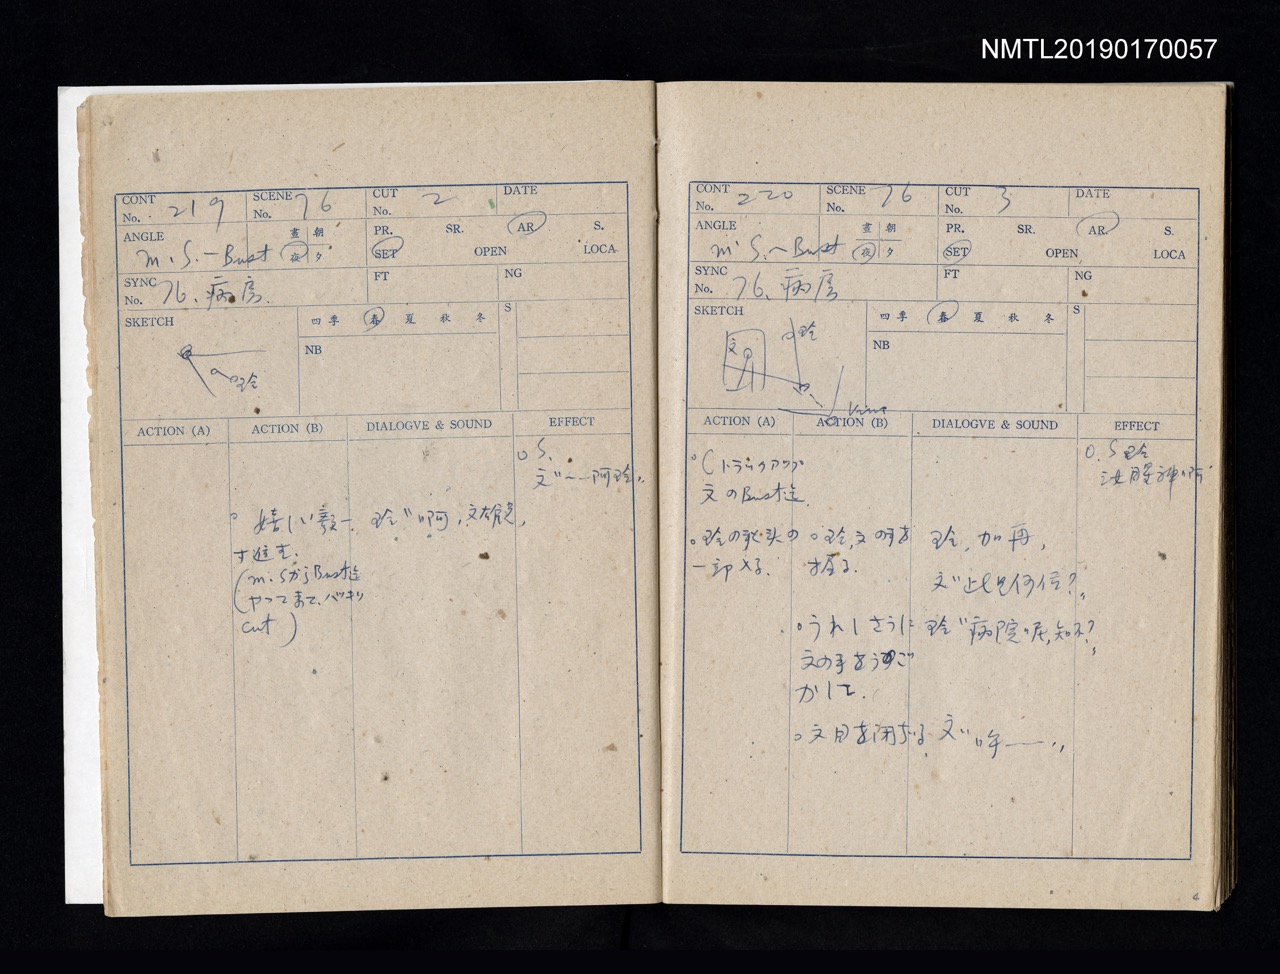 NMTL20190170057
CONT No. 219
SCENE No. 76
CUT No. 2
DATE
ANGLE m.S.~Bust
晝 朝
夜 夕
PR. SR. AR S.
SET OPEN LOCA
SYNC No. 76. 病房.
FT
NG
SKETCH
玲
四季 春 夏 秋 冬
NB
S
ACTION (A)
ACTION (B)
DIALOGVE & SOUND
EFFECT
O S.
文〝~~阿玲〟
嬉しい
玲〝啊,文雄
(m.SからBust迄
cut)
CONT No. 220
SCENE No. 76
CUT No. 3
DATE
ANGLE m.S.~Bust
晝 朝
夜 夕
PR. SR. AR S.
SET OPEN LOCA
SYNC No. 76. 病房
FT
NG
SKETCH
文
玲
四季 春 夏 秋 冬
NB
S
ACTION (A)
ACTION (B)
DIALOGVE & SOUND
EFFECT
(トラックアップ
文のBust迄
O.S玲
。玲の
一部入る.
。玲,文の手を
握る.
玲,
文〝此是何位?〟
。うれしさうに
文の手をうご
かして.
玲〝病院呢,知不?〟
。文目を閉ぢる
文〝